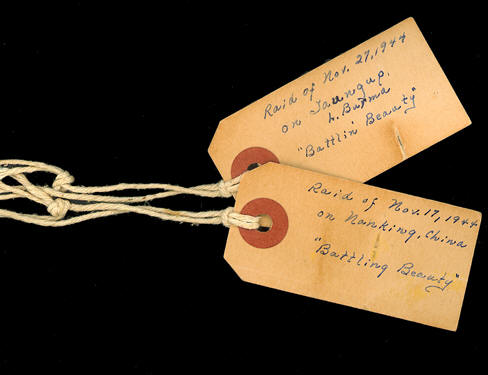 Raid of Nov. 27, 1944
on Taungup,
L. Burma
"Battlin Beauty"
Raid of Nov. 17, 1944
on Nanking, China
"Battling Beauty"